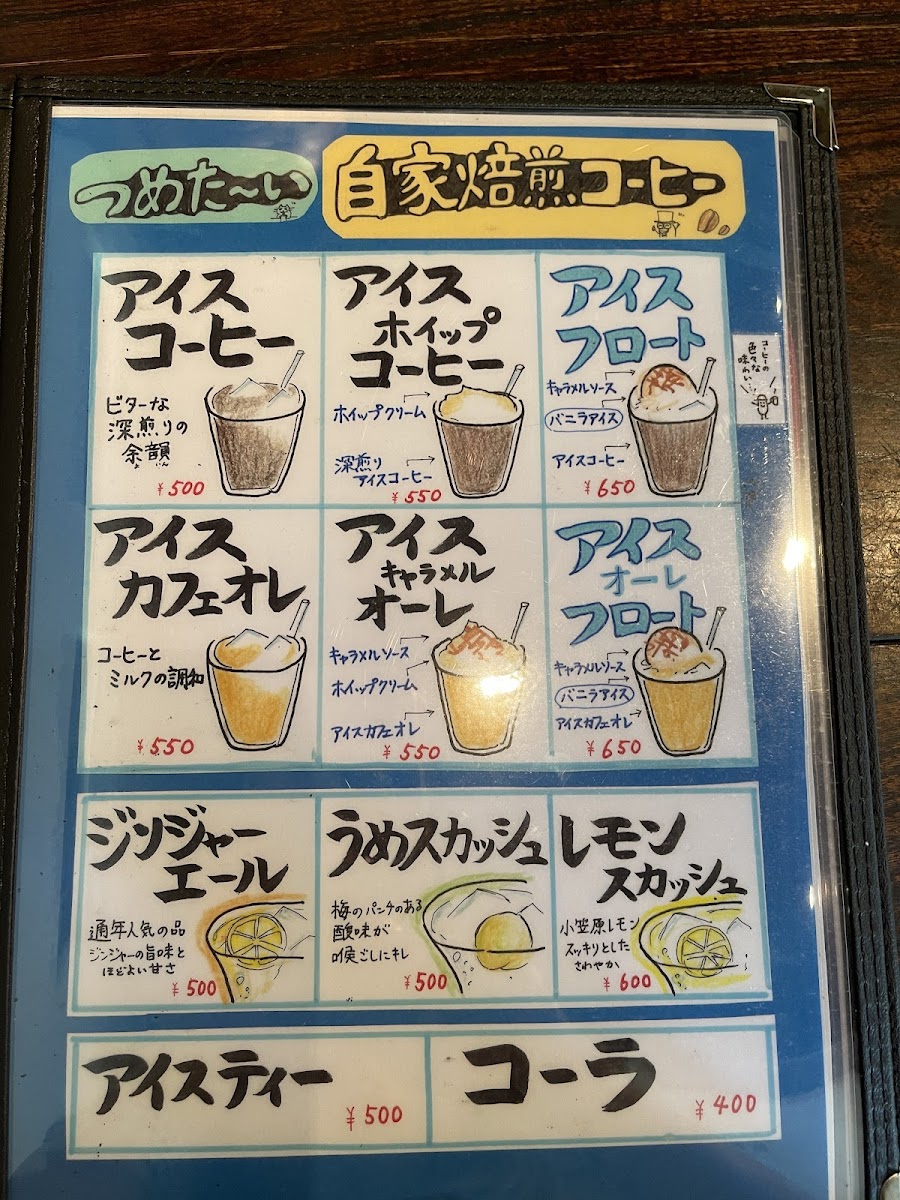 つめた〜い
自家焙煎コーヒー
アイス
コーヒー
ビターな
深煎りの
余韻
よいん
¥500
アイス
ホイップ
コーヒー
ホイップクリーム
深煎り
アイスコーヒー
¥550
アイス
フロート
キャラメルソース
バニラアイス
アイスコーヒー
¥650
コーヒーの
色々な
味わい
アイス
カフェオレ
コーヒーと
ミルクの調和
¥550
アイス
キャラメル
オーレ
キャラメルソース
ホイップクリーム
アイスカフェオレ
¥550
アイス
オーレ
フロート
キャラメルソース
バニラアイス
アイスカフェオレ
¥650
ジンジャー
エール
通年人気の品
ジンジャーの旨味と
ほどよい甘さ
¥500
うめスカッシュ
梅のパンチのある
酸味が
喉ごしにキレ
¥500
レモン
スカッシュ
小笠原レモン
スッキリとした
さわやか
¥600
アイスティー
¥500
コーラ
¥400